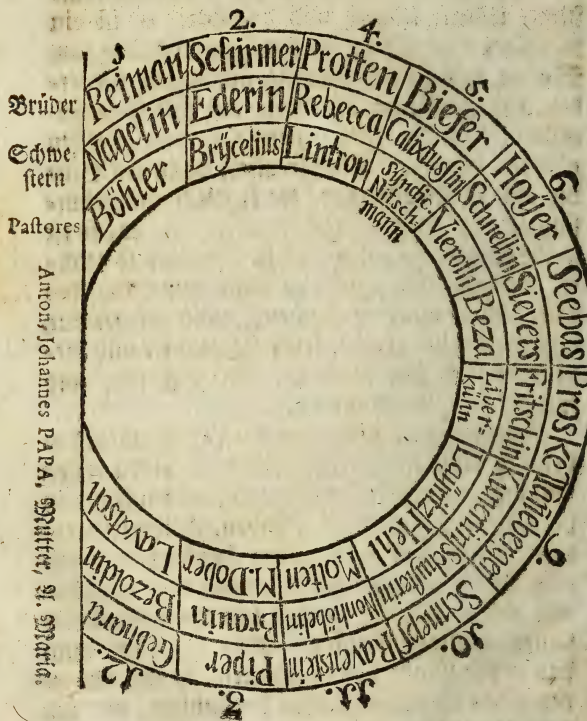 1. 2. 4. 5. 6. 9. 10. 11. 3. 12.
Brüder
Reiman Schirmer Protten Biefer Hoÿer Seebas Proske Täneberger Schnepf Ravenstein Piper Gebhard
Schwe-
stern
Nagelin Ederin Rebecca Schnellin Sievers Fritschin Kunertin Schusterin Nonhöbelin Brauin Bezoldin
Pastores
Böhler Brÿcelius Lintrop Syndic.
Nitsch
mann
Vieroth Beza Liber-
kühn
Läyritz Hehl Molten M.Dober Lavatsch
Anton, Johannes PAPA, Mutter, A. Maria.